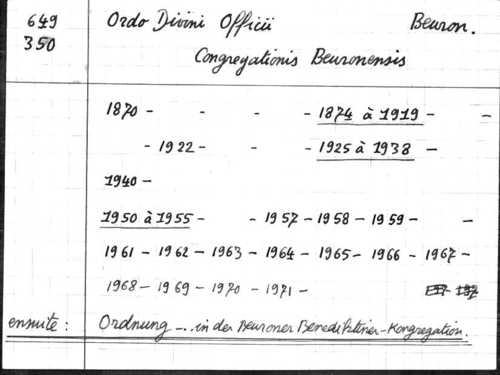 649 Ordo Divini Officii Beuron.
350 Congregationis Beuronensis
1870 - - - - 1874 à 1919 - -
- 1922 - - - 1925 à 1938 -
1940 -
1950 à 1955 - - 1957 - 1958 - 1959 - -
1961 - 1962 - 1963 - 1964 - 1965 - 1966 - 1967 -
1968 - 1969 - 1970 - 1971 -
ensuite : Ordnung ... in der Beuroner Benediktiner-Kongregation.